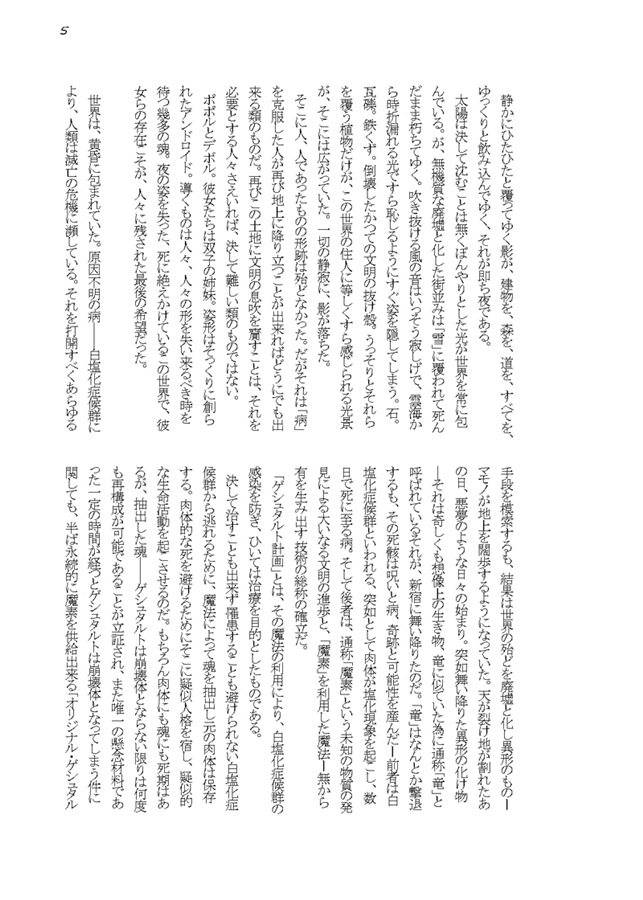 5
静かにひたひたと覆ってゆく影が、建物を、森を、道を、すべてを、
ゆっくりと飲み込んでゆく、それが即ち夜である。
太陽は決して沈むことは無くぼんやりとした光が世界を常に包
んでいる。が、無機質な廃墟と化した街並みは「雪」に覆われて死ん
だまま朽ちてゆく。吹き抜ける風の音はいっそう寂しげで、雲海か
ら時折漏れる光ですら恥じるようにすぐ姿を隠してしまう。石。
瓦礫。鉄くず。倒壊したかつての文明の抜け殻。うっそりとそれら
を覆う植物だけが、この世界の住人に等しくすら感じられる光景
が、そこには広がっていた。一切の静寂に、影が落ちた。
そこに人、人であったものの形跡は殆どなかった。だがそれは「病」
を克服した人が再び地上に降り立つことが出来ればどうにでも出
来る類のものだ。再びこの土地に文明の息吹を齎すことは、それを
必要とする人々さえいれば、決して難しい類のものではない。
ポポルとデボル。彼女たちは双子の姉妹。姿形はそっくりに創ら
れたアンドロイド。導くものは人々、人々の形を失い来るべき時を
待つ幾多の魂。夜の姿を失った、死に絶えかけているこの世界で、彼
女らの存在こそが、人々に残された最後の希望だった。
世界は、黄昏に包まれていた。原因不明の病――白塩化症候群に
より、人類は滅亡の危機に瀕している。それを打開すべくあらゆる
手段を模索するも、結果は世界の殆どを廃墟と化し異形のもの―
マモノが地上を闊歩するようになっていた。天が裂け地が割れたあ
の日、悪夢のような日々の始まり。突如舞い降りた異形の化け物
―それは奇しくも想像上の生き物、竜に似ていた為に通称「竜」と
呼ばれているそれが、新宿に舞い降りたのだ。「竜」はなんとか撃退
するも、その死骸は呪いと病、奇跡と可能性を産んだ―前者は白
塩化症候群といわれる、突如として肉体が塩化現象を起こし、数
日で死に至る病。そして後者は、通称「魔素」という未知の物質の発
見による大いなる文明の進歩と、「魔素」を利用した魔法―無から
有を生み出す技術の総称の確立だ。
「ゲシュタルト計画」とは、その魔法の利用により、白塩化症候群の
感染を防ぎ、ひいては治療を目的としたものである。
決して治すことも出来ず罹患することも避けられない白塩化症
候群から逃れるために、魔法によって魂を抽出し元の肉体は保存
する。肉体的な死を避けるためにそこに疑似人格を宿し、疑似的
な生命活動を起こさせるのだ。もちろん肉体にも魂にも死期はあ
るが、抽出した魂――ゲシュタルトは崩壊体とならない限りは何度
も再構成が可能であることが立証され、また唯一の懸念材料であ
った一定の時間が経つとゲシュタルトは崩壊体となってしまう件に
関しても、半ば永続的に魔素を供給出来る「オリジナル・ゲシュタル